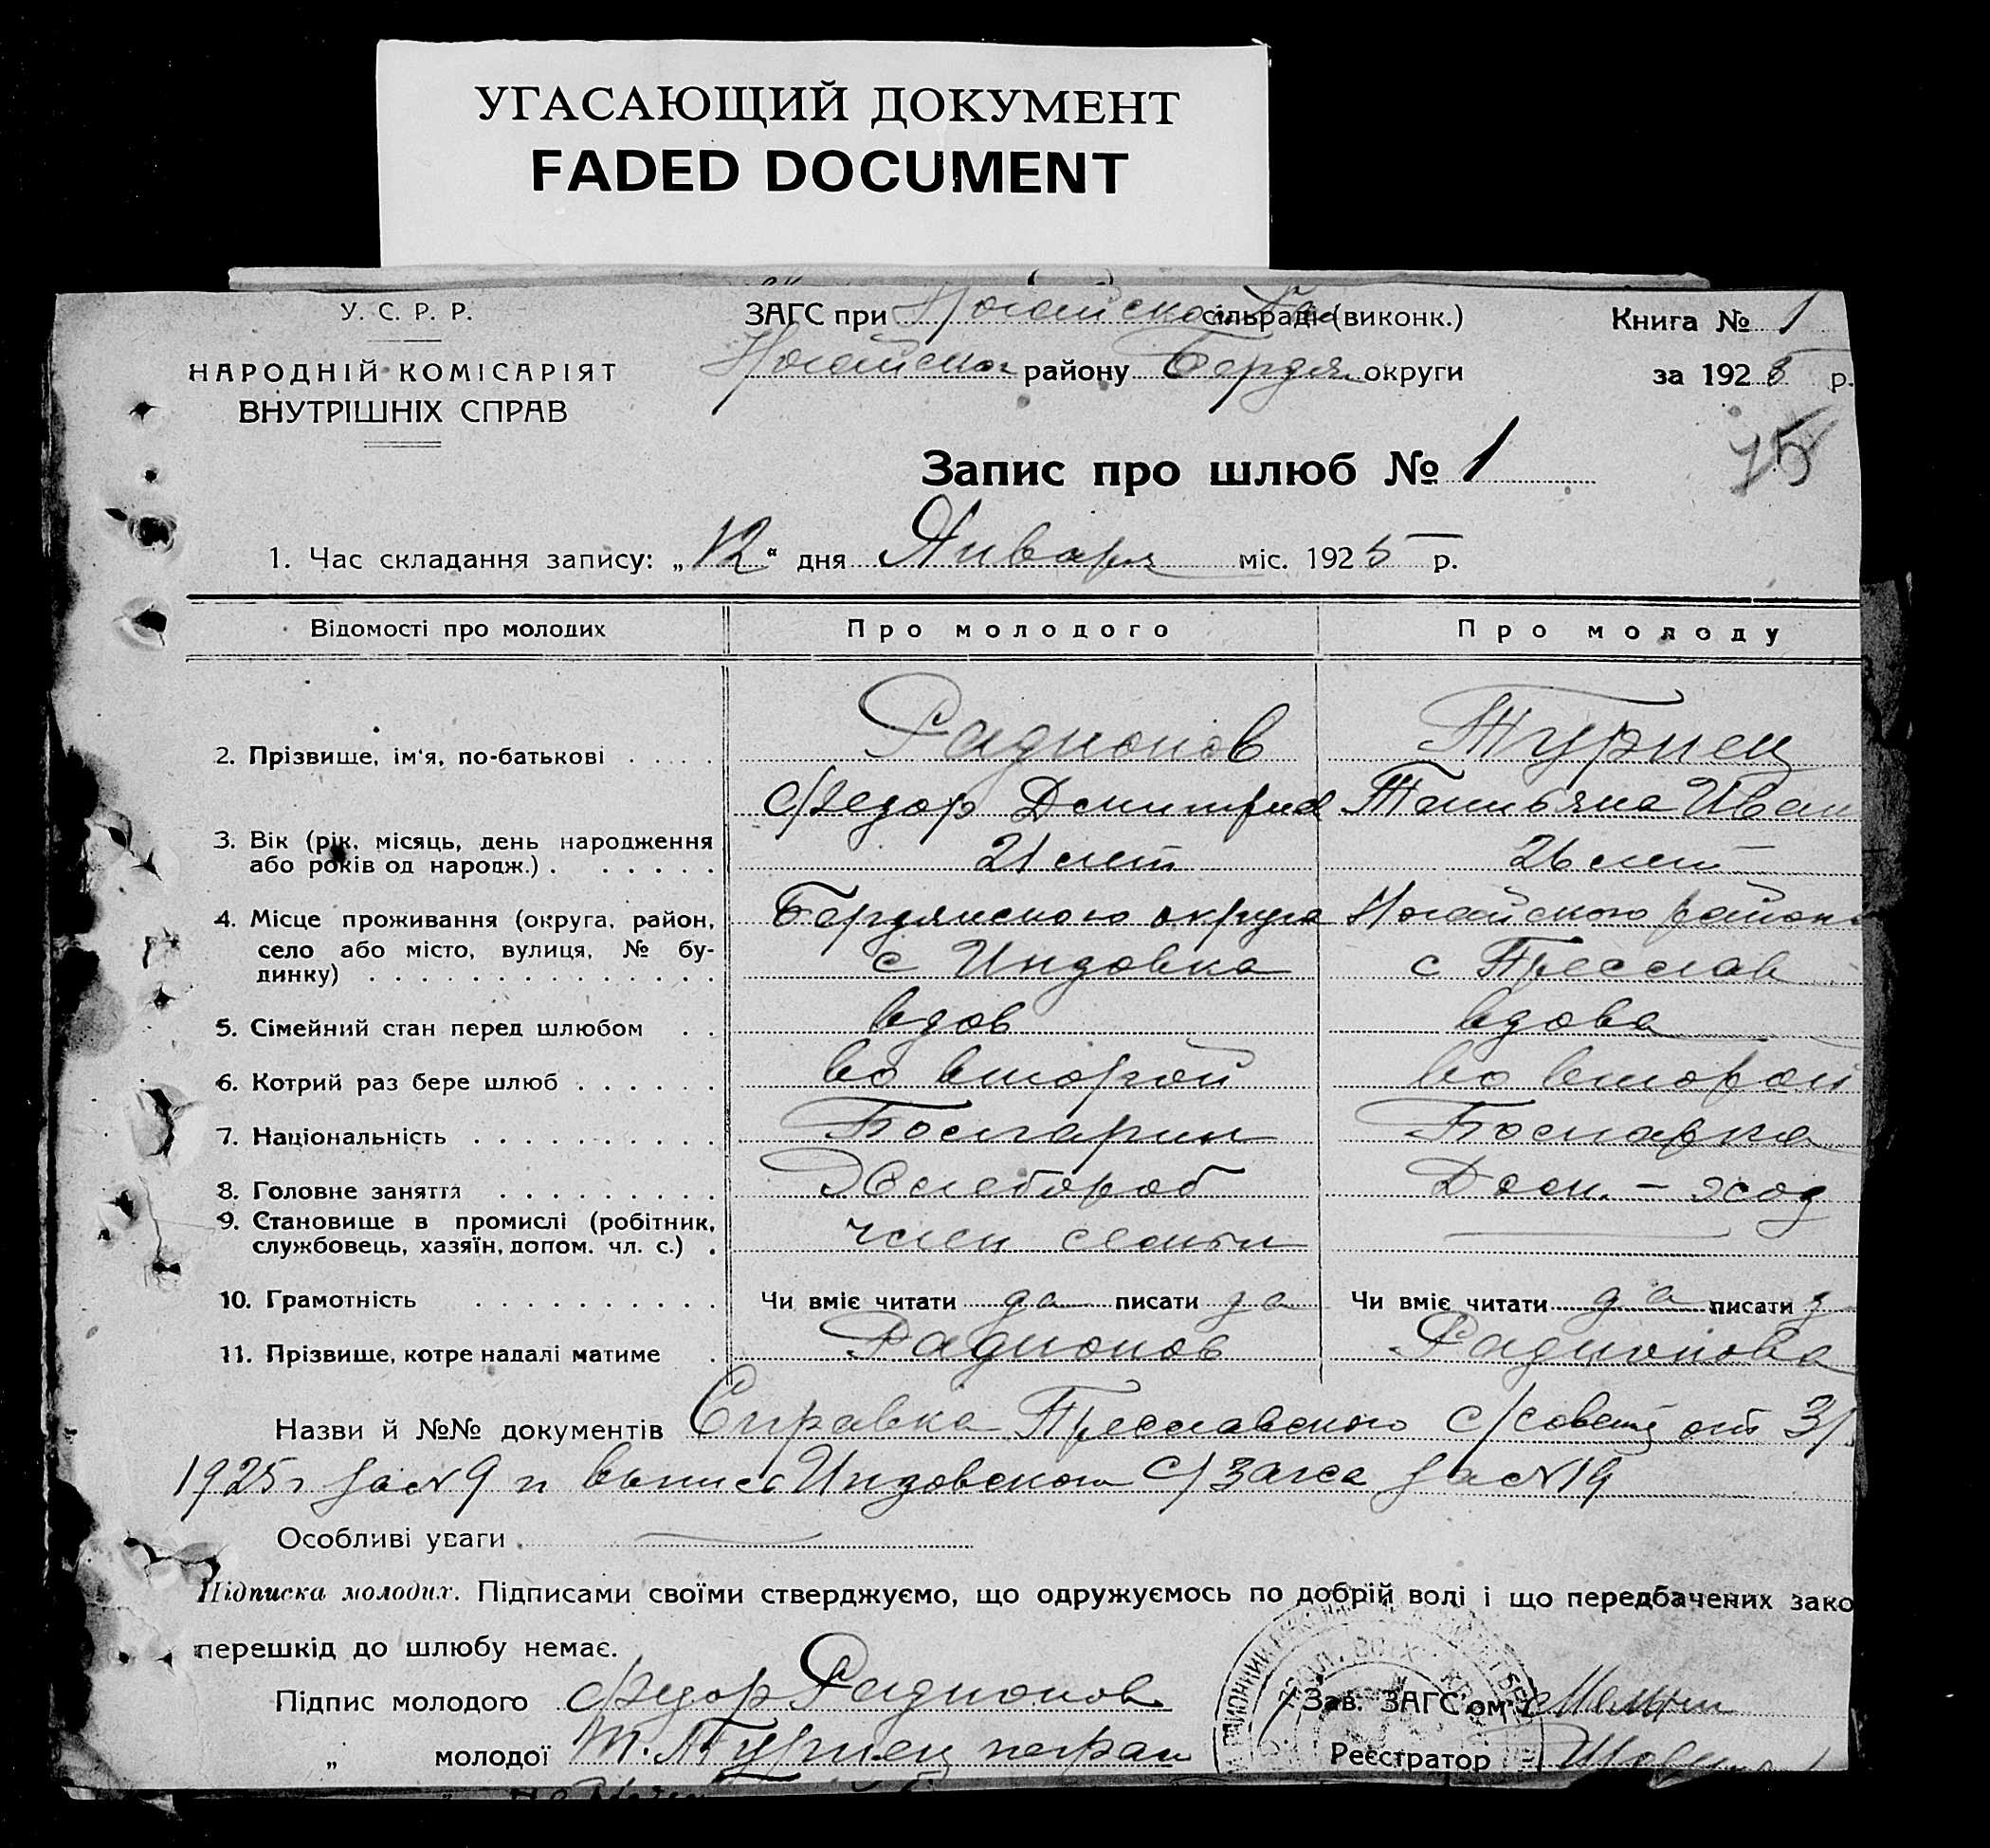 УГАСАЮЩИЙ ДОКУМЕНТ
FADED DOCUMENT
У. С. Р. Р.
НАРОДНІЙ КОМІСАРІЯТ
ВНУТРІШНІХ СПРАВ
ЗАГС при сільраді (виконк.)
району Бердян округи
Книга № 1
за 1925 р.
75
Запис про шлюб № 1
1. Час складання запису: „12“ дня Января міс. 1925 р.
Відомості про молодих Про молодого Про молоду
2. Прізвище, ім'я, по-батькові . . . . Радионов Турнец
Федор Дмитриев Татьяна Иван
3. Вік (рік, місяць, день народження
або років од народж.) . . . . . . 21 лет 26 лет
4. Місце проживання (округа, район, Бердянского округа Ногайского района
село або місто, вулиця, № бу-
динку) . . . . . . . . . . . . . . с Инзовка с Преслав
5. Сімейний стан перед шлюбом . . вдов вдова
6. Котрий раз бере шлюб . . . . . . во второй во второй
7. Національність . . . . . . . . . . Болгарин Болгарка
8. Головне заняття . . . . . . . . . Хлебороб Дом. - хоз
9. Становище в промислі (робітник,
службовець, хазяїн, допом. чл. с.) . член семьи
10. Грамотність . . . . . . . . . . Чи вміє читати да писати да Чи вміє читати да писати д
11. Прізвище, котре надалі матиме . Радионов Радионова
Назви й №№ документів Справка Преславского с/совета от 3/
1925 г за № 9 и выпись Инзовского с/загса за № 19
Особливі уваги
Підписка молодих. Підписами своїми стверджуємо, що одружуємось по добрій волі і що передбачених зако
перешкід до шлюбу немає.
Підпис молодого Федор Радионов
Зав. ЗАГС'ом
„ молодої Т. Турнец
Реєстратор